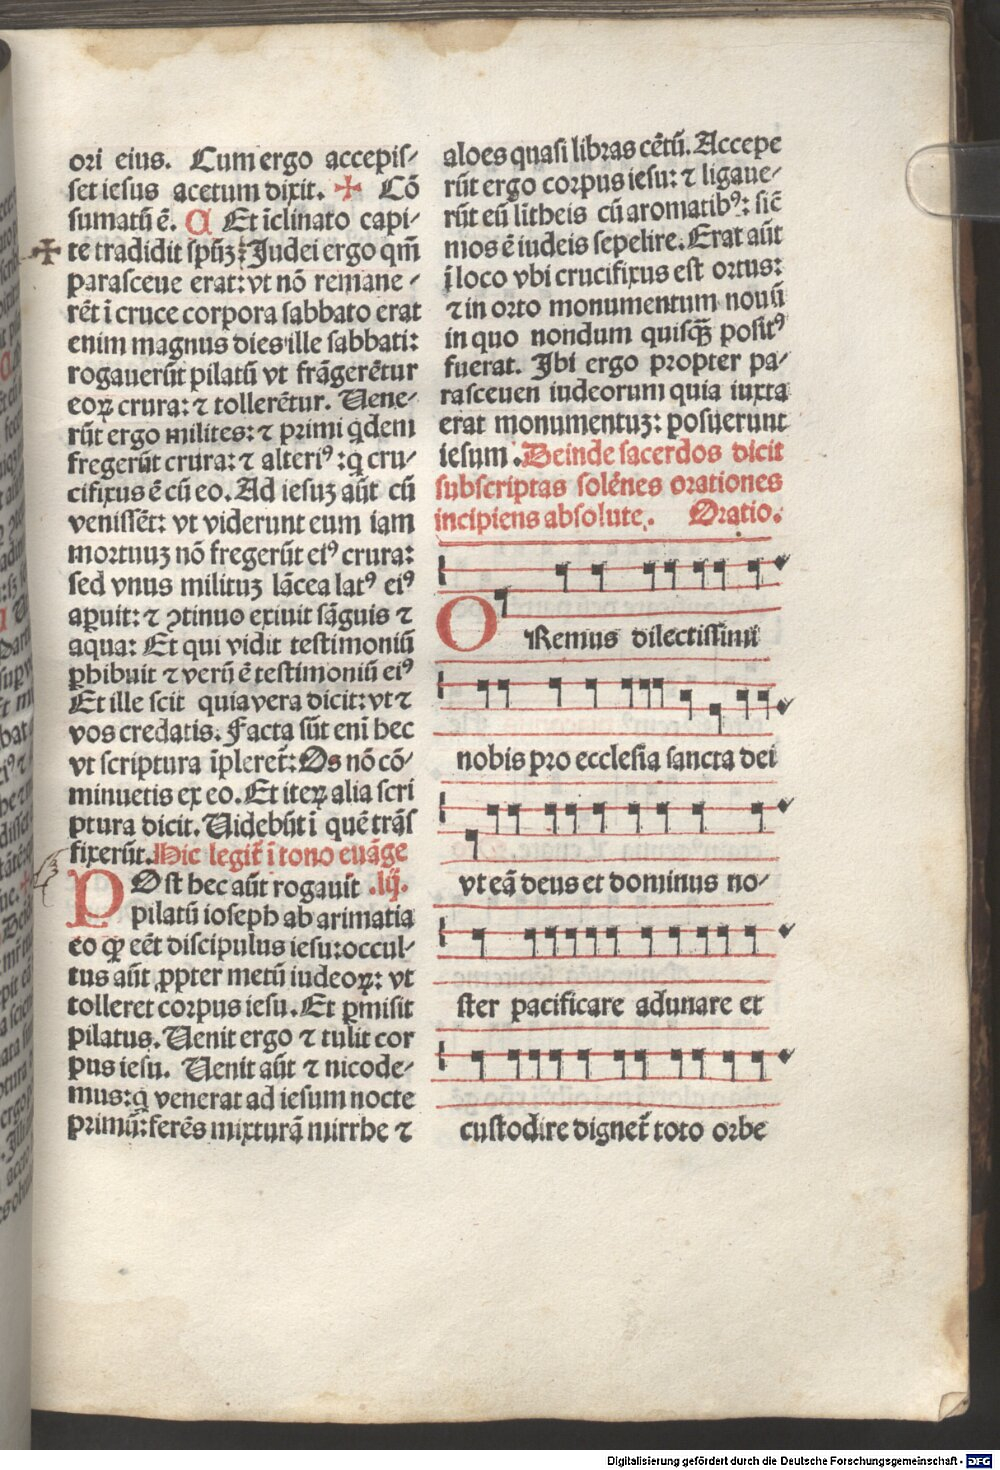 ori eius. Cum ergo accepis⸗
set iesus acetum dixit. ✠ Cõ
sumatũ ẽ. C Et ĩclinato capi⸗
te tradidit spũʒ: Judei ergo qm̃
parasceue erat: vt nõ remane⸗
rẽt ĩ cruce corpora sabbato erat
enim magnus dies ille sabbati:
rogauerũt pilatũ vt frãgerẽtur
eoꝝ crura: ⁊ tollerẽtur. Uene⸗
rũt ergo milites: ⁊ primi q̇dem
fregerũt crura: ⁊ alteriꝰ: q̇ cru⸗
cifixus ẽ cũ eo. Ad iesuʒ aũt cũ
venissẽt: vt viderunt eum iam
mortuuʒ nõ fregerũt eiꝰ crura:
sed vnus milituʒ lãcea latꝰ eiꝰ
aꝑuit: ⁊ ↄtinuo exiuit sãguis ⁊
aqua: Et qui vidit testimoniũ
ꝑhibuit ⁊ verũ ẽ testimoniũ eiꝰ
Et ille scit quia vera dicit: vt ⁊
vos credatis. Facta sũt enĩ hec
vt scriptura ĩpleret̃: Os nõ cõ⸗
minuetis ex eo. Et iteꝝ alia scri
ptura dicit. Uidebũt ĩ quẽ trãs
fixerũt. Hic legit̃ ĩ tono euãge
POst hec aũt rogauit .lij.
pilatũ ioseph ab arimatia
eo ꝙ eẽt discipulus iesu: occul⸗
tus aũt ꝓpter metũ iudeoꝝ: vt
tolleret corpus iesu. Et ꝑmisit
pilatus. Uenit ergo ⁊ tulit cor
pus iesu. Uenit aũt ⁊ nicode⸗
mus: q̇ venerat ad iesum nocte
primũ: ferẽs mixturã mirrhe ⁊
aloes quasi libras cẽtũ. Accepe
rũt ergo corpus iesu: ⁊ ligaue⸗
rũt eũ lĩtheis cũ aromatibꝰ: sic̃
mos ẽ iudeis sepelire. Erat aũt
ĩ loco vbi crucifixus est ortus:
⁊ in orto monumentum nouũ
in quo nondum quisq̃ꝫ positꝰ
fuerat. Ibi ergo propter pa⸗
rasceuen iudeorum quia iuxta
erat monumentuʒ: posuerunt
iesum. Deinde sacerdos dicit
subscriptas solẽnes orationes
incipiens absolute. Oratio.
ORemus dilectissimi
nobis pro ecclesia sancta dei
vt eã deus et dominus no⸗
ster pacificare adunare et
custodire dignet̃ toto orbe
Digitalisierung gefördert durch die Deutsche Forschungsgemeinschaft - DFG